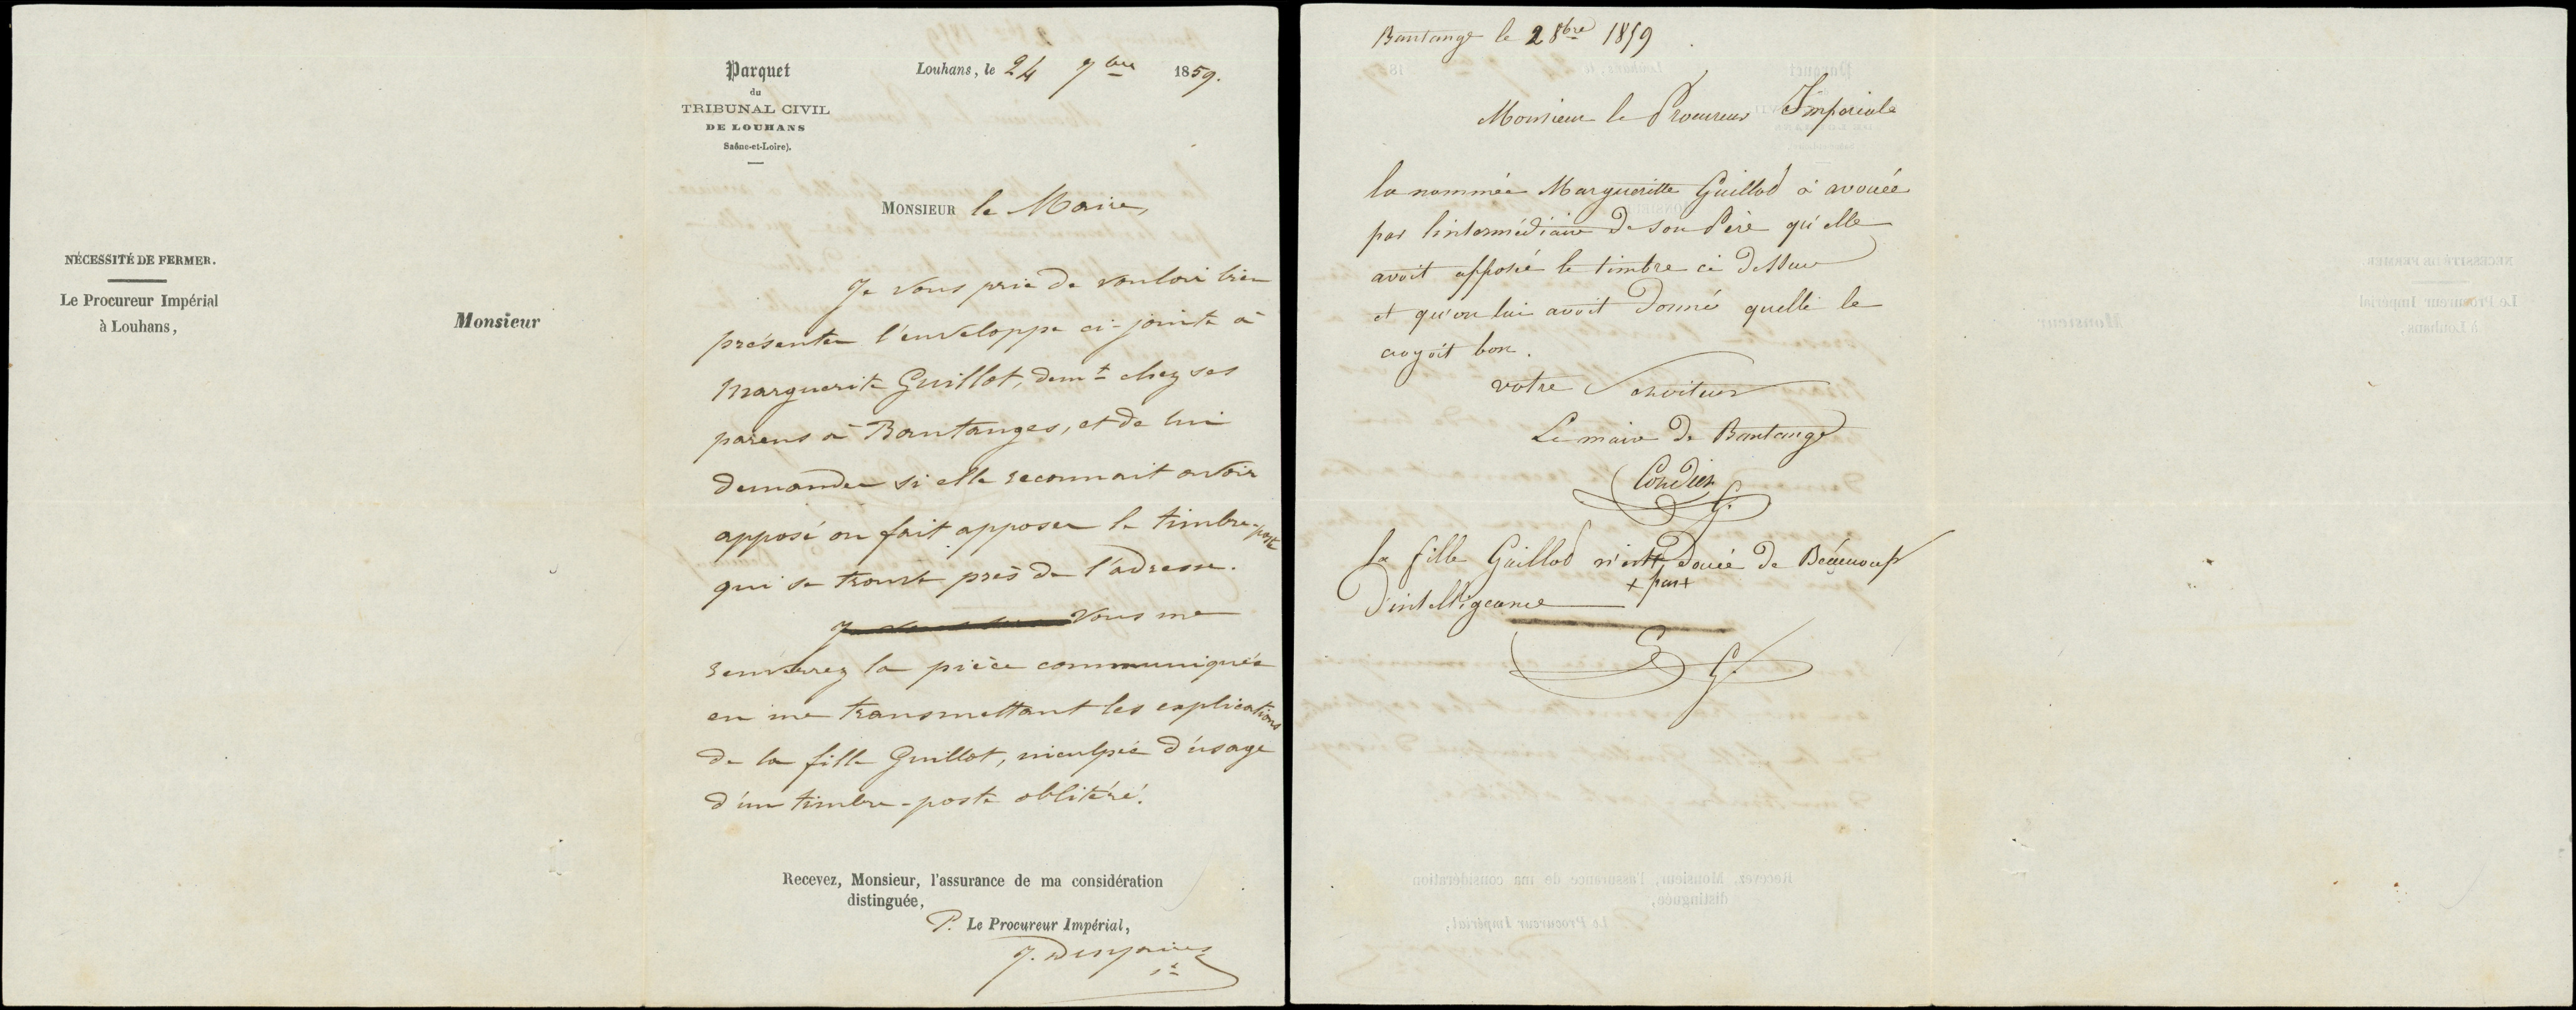 NÉCESSITÉ DE FERMER.
Le Procureur Impérial
à Louhans,
Monsieur
Parquet
du
TRIBUNAL CIVIL
DE LOUHANS
Saône-et-Loire).
Louhans, le 24 7bre 1859.
MONSIEUR le Maire,
Je vous prie de vouloir bien
présenter l'enveloppe ci-jointe à
Marguerite Guillot, demt chez ses
parens à Bantanges, et de lui
demander si elle reconnait avoir
apposé ou fait apposer le timbre-poste
qui se trouve près de l'adresse.
Vous me
renverrez la pièce communiquée
en me transmettant les explications
de la fille Guillot, inculpée d'usage
d'un timbre-poste oblitéré.
Recevez, Monsieur, l'assurance de ma considération
distinguée,
P. Le Procureur Impérial,
Bantange le 2 8bre 1859
Monsieur le Procureur Imperiale
la nommée Margueritte Guillod à avouée
par lintermédiaire de son Père qu'elle
avoit apposée le timbre ci dessus
et qu'on lui avoit donné quelle le
croyoit bon.
votre Serviteur
Le maire de Bantange
G.
la fille Guillod n'est douée de Beaucoup
+ pas +
d'intelligeance
G.